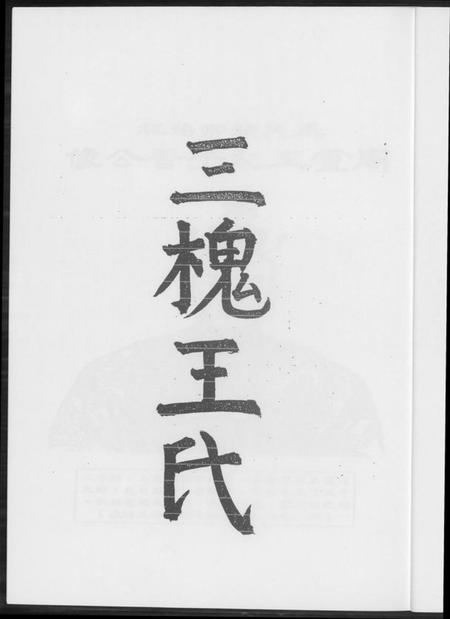 三槐王氏